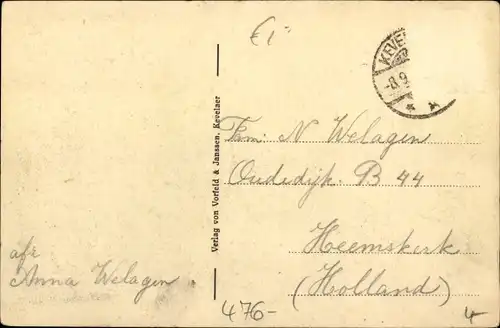 KEVE
-8.9
* *
Verlag von Vorfeld & Janssen, Kevelaer
Fam: N Welagen
Oudedijk. B 44
Heemskerk
(Holland)
afz
Anna Welagen
476-
4